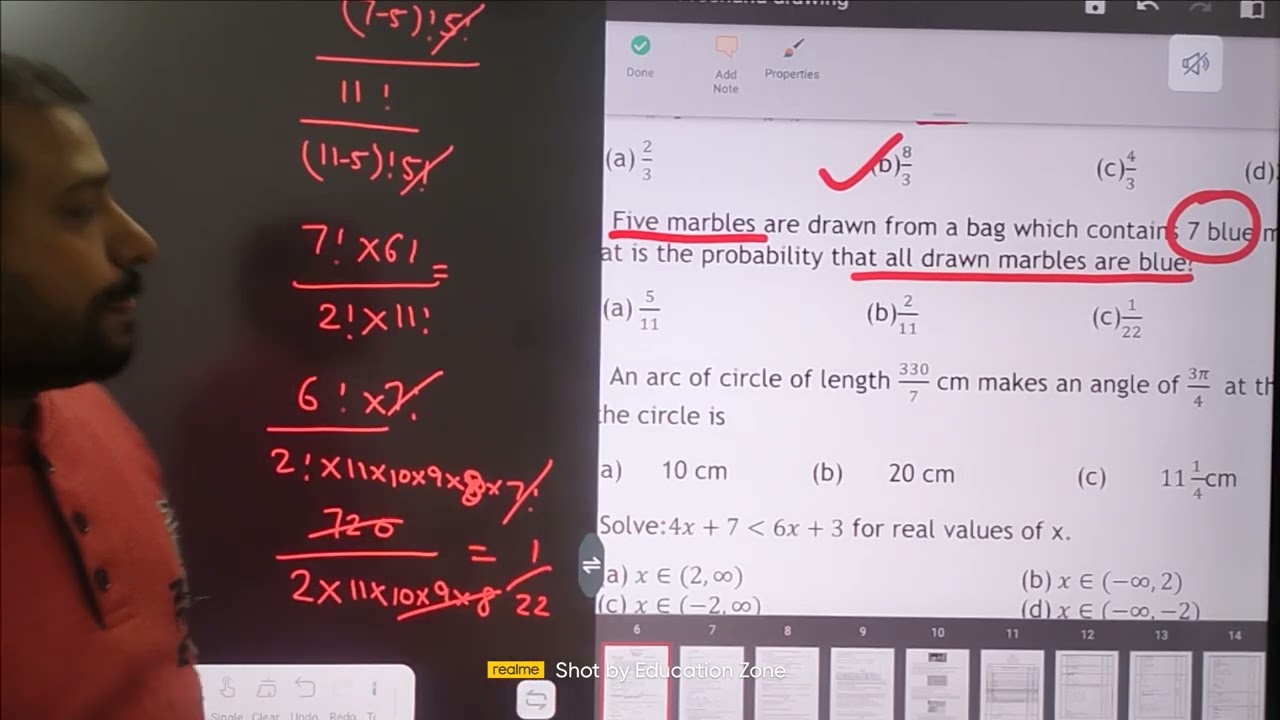 (7-5)!5!
11!
(11-5)!5!
7! × 6! =
2! × 11!
6! × 7!
2! × 11 × 10 × 9 × 8 × 7!
720 = 1
2 × 11 × 10 × 9 × 8 22
Done
Add
Note
Properties
(a) 2/3 (b) 8/3 (c) 4/3 (d)
Five marbles are drawn from a bag which contains 7 blue m
at is the probability that all drawn marbles are blue?
(a) 5/11 (b) 2/11 (c) 1/22
An arc of circle of length 330/7 cm makes an angle of 3π/4 at th
the circle is
a) 10 cm (b) 20 cm (c) 11 1/4 cm
Solve: 4x + 7 < 6x + 3 for real values of x.
(a) x ∈ (2, ∞) (b) x ∈ (−∞, 2)
(c) x ∈ (−2, ∞) (d) x ∈ (−∞, −2)
6 7 8 9 10 11 12 13 14
Single Clear Undo Redo
realme Shot by Education Zone